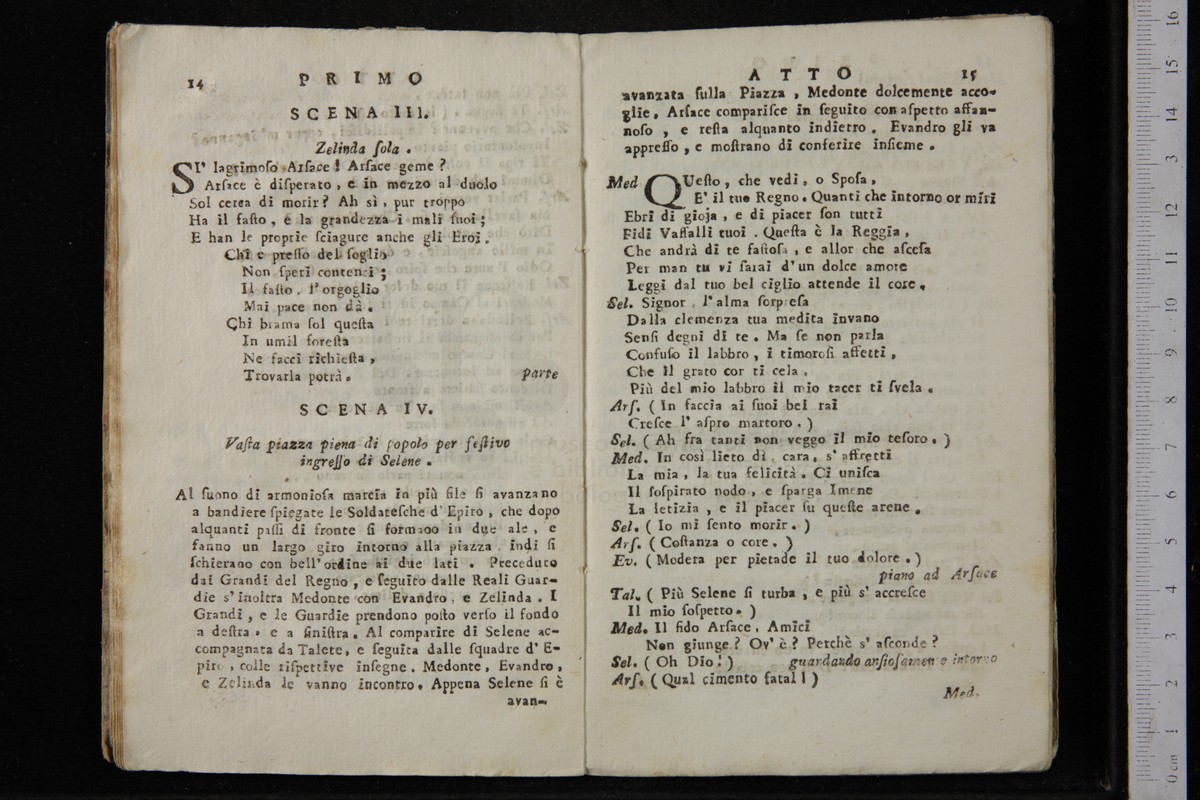 14 PRIMO
SCENA III.
Zelinda ſola .
SI' lagrimoſo Arſace ! Arſace geme ?
Arſace è diſperato , e in mezzo al duolo
Sol cerca di morir ? Ah sì , pur troppo
Ha il faſto , e la grandezza i mali ſuoi ;
E han le proprie ſciagure anche gli Eroi .
Chi è preſſo del ſoglio
Non ſperi contenti ;
Il faſto , l' orgoglio
Mai pace non dà .
Chi brama ſol queſta
In umil foreſta
Ne facci richieſta ,
Trovarla potrà . parte
SCENA IV.
Vaſta piazza piena di popolo per feſtivo
ingreſſo di Selene .
Al ſuono di armonioſa marcia in più file ſi avanzano
a bandiere ſpiegate le Soldateſche d' Epiro , che dopo
alquanti paſſi di fronte ſi formano in due ale , e
fanno un largo giro intorno alla piazza . indi ſi
ſchierano con bell' ordine ai due lati . Preceduto
dai Grandi del Regno , e ſeguito dalle Reali Guar-
die s' inoltra Medonte con Evandro , e Zelinda . I
Grandi , e le Guardie prendono poſto verſo il fondo
a deſtra , e a ſiniſtra . Al comparire di Selene ac-
compagnata da Talete, e ſeguita dalle ſquadre d' E-
piro , colle riſpettive inſegne . Medonte , Evandro ,
e Zelinda le vanno incontro . Appena Selene ſi è
avan-
ATTO 15
avanzata ſulla Piazza , Medonte dolcemente acco-
glie . Arſace compariſce in ſeguito con aſpetto affan-
noſo , e reſta alquanto indietro . Evandro gli va
appreſſo , e moſtrano di conferire inſieme .
Med QUeſto , che vedi , o Spoſa ,
E' il tuo Regno . Quanti che intorno or miri
Ebri di gioja , e di piacer ſon tutti
Fidi Vaſſalli tuoi . Queſta è la Reggia ,
Che andrà di te faſtoſa , e allor che aſceſa
Per man tu vi ſarai d' un dolce amore
Leggi dal tuo bel ciglio attende il core .
Sel. Signor , l' alma ſorpreſa
Dalla clemenza tua medita invano
Senſi degni di te . Ma ſe non parla
Confuſo il labbro , i timoroſi affetti ,
Che il grato cor ti cela ,
Più del mio labbro il mio tacer ti ſvela .
Arſ. ( In faccia ai ſuoi bei rai
Creſce l' aſpro martoro . )
Sel. ( Ah fra tanti non veggo il mio teſoro . )
Med. In così lieto dì , cara , s' affretti
La mia , la tua felicità . Ci uniſca
Il ſoſpirato nodo , e ſparga Imene
La letizia , e il piacer ſu queſte arene .
Sel. ( Io mi ſento morir . )
Arſ. ( Coſtanza o core . )
Ev. ( Modera per pietade il tuo dolore . )
piano ad Arſace
Tal. ( Più Selene ſi turba , e più s' accreſce
Il mio ſoſpetto . )
Med. Il fido Arſace , Amici
Non giunge ? Ov' è ? Perchè s' aſconde ?
Sel. ( Oh Dio ! ) guardando anſioſamente intorno
Arſ. ( Qual cimento fatal ! )
Med.
0 cm 1 2 3 4 5 6 7 8 9 10 11 12 13 14 15 16